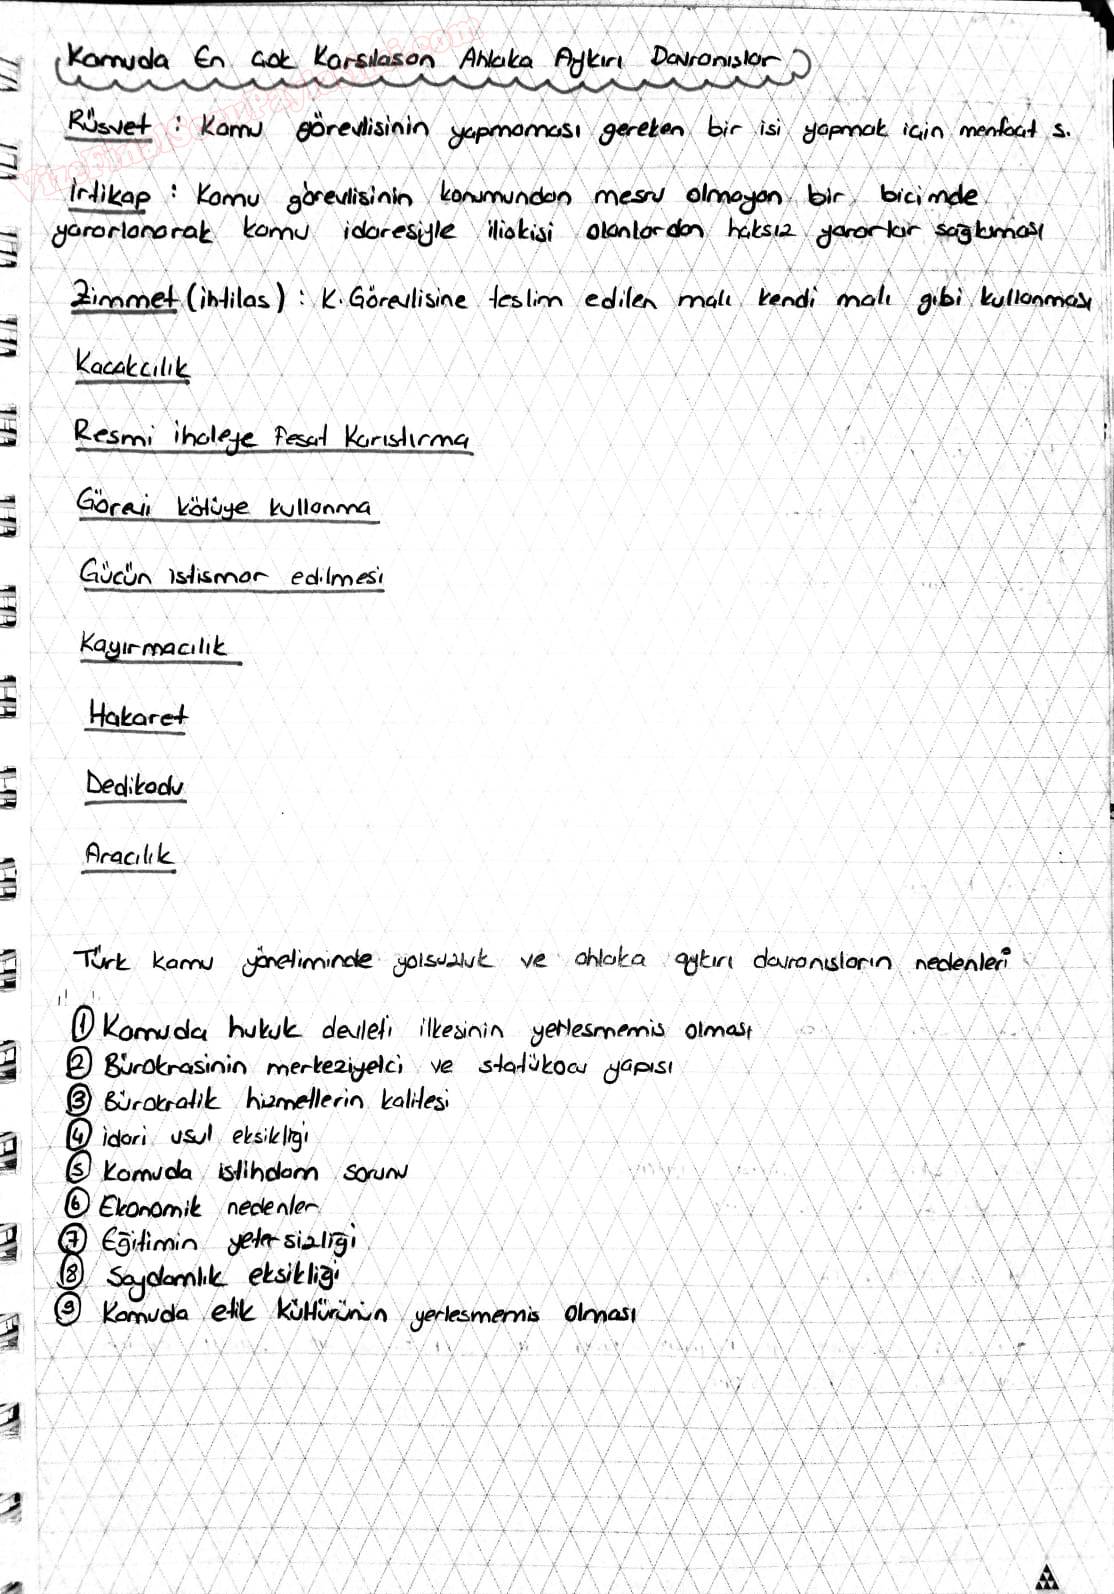 Kamuda En Çok Karsılasan Ahlaka Aykırı Davranıslar
Rüsvet : Kamu görevlisinin yapmaması gereken bir isi yapmak için menfaat s.
İrtikap : Kamu görevlisinin konumundan mesru olmayan bir bicimde
yararlanarak kamu idaresiyle iliskisi olanlardan haksız yararlar sağlaması
Zimmet (ihtilas) : K. Görevlisine teslim edilen malı kendi malı gibi kullanması
Kacakcılık
Resmi ihaleye Fesat Karıstırma
Görevi kötüye kullanma
Gücün istismar edilmesi
Kayırmacılık
Hakaret
Dedikodu
Aracılık
Türk kamu yönetiminde yolsuzluk ve ahlaka aykırı davranısların nedenleri
1 Kamuda hukuk devleti ilkesinin yerlesmemis olması
2 Bürokrasinin merkeziyetci ve statükocu yapısı
3 Bürokratik hizmetlerin kalitesi
4 idari usul eksikliği
5 Kamuda istihdam sorunu
6 Ekonomik nedenler
7 Eğitimin yetersizliği
8 Saydamlık eksikliği
9 Kamuda etik kültürünün yerlesmemis olması